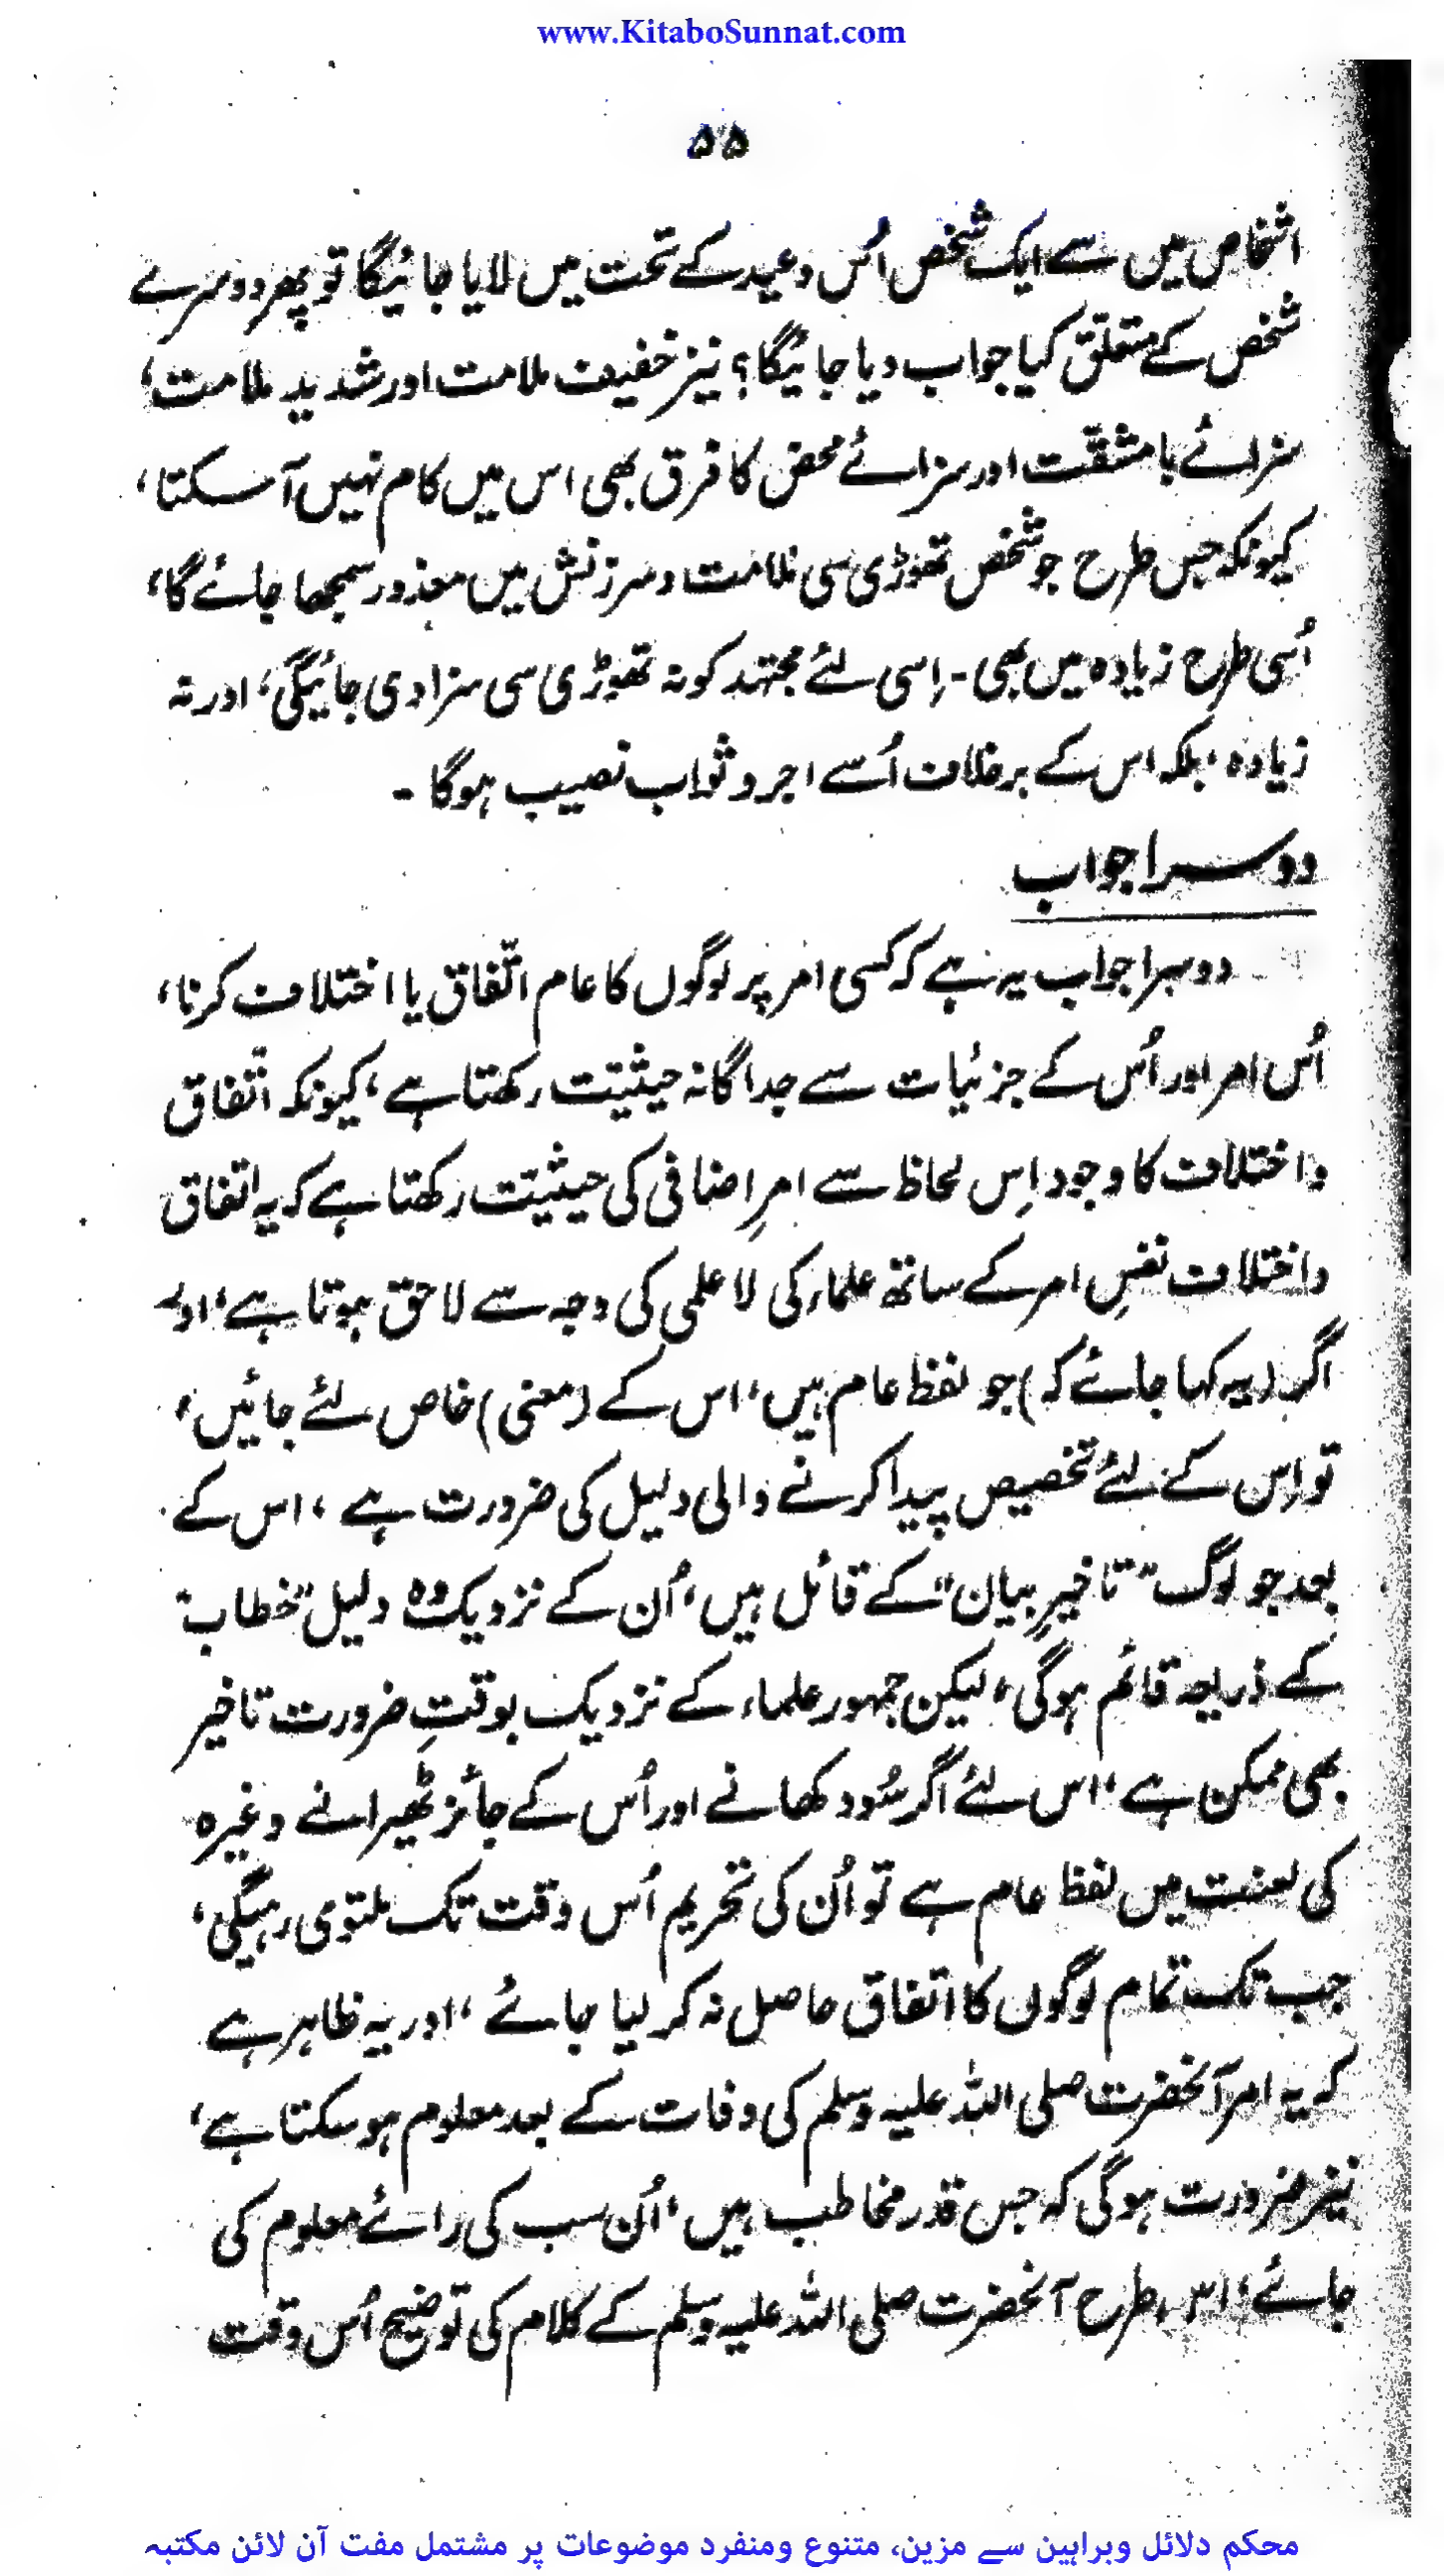 www.KitaboSunnat.com
۵۵
اشخاص میں سے ایک شخص اُس وعید کے تحت میں لایا جائیگا تو پھر دوسرے
شخص کے متعلق کیا جواب دیا جائیگا؟ نیز خفیف ملامت اور شدید ملامت،
سزائے بامشقّت اور سزائے محض کا فرق بھی اس میں کام نہیں آسکتا،
کیونکہ جس طرح جو شخص تھوڑی سی ملامت و سرزنش میں معذور سمجھا جائے گا،
اُسی طرح زیادہ میں بھی ۔ اِسی لئے مجتہد کو نہ تھوڑی سی سزا دی جائیگی، اور نہ
زیادہ، بلکہ اس کے برخلاف اُسے اجر و ثواب نصیب ہوگا ۔
دوسرا جواب
دوسرا جواب یہ ہے کہ کسی امر پر لوگوں کا عام اتّفاق یا اختلاف کرنا،
اُس امر اور اُس کے جزئیات سے جداگانہ حیثیّت رکھتا ہے، کیونکہ اتّفاق
و اختلاف کا وجود اِس لحاظ سے امرِ اضافی کی حیثیّت رکھتا ہے کہ یہ اتفاق
و اختلاف نفسِ امر کے ساتھ علماء کی لا علمی کی وجہ سے لاحق ہوتا ہے، اور
اگر (یہ کہا جائے کہ) جو لفظ عام ہیں، اس کے (معنی) خاص لئے جائیں،
تو اِس کے لئے تخصیص پیدا کرنے والی دلیل کی ضرورت ہے، اس کے
بعد جو لوگ "تاخیرِ بیان" کے قائل ہیں، اُن کے نزدیک وہ دلیل "خطاب"
کے ذریعہ قائم ہوگی، لیکن جمہور علماء کے نزدیک بوقتِ ضرورت تاخیر
بھی ممکن ہے، اس لئے اگر سُود کھانے اور اُس کے جائز ٹھیرانے وغیرہ
کی لعنت میں لفظ عام ہے تو اُن کی تحریم اُس وقت تک ملتوی رہیگی،
جب تک تمام لوگوں کا اتفاق حاصل نہ کر لیا جائے، اور یہ ظاہر ہے
کہ یہ امر آنحضرت صلی اللہ علیہ وسلم کی وفات کے بعد معلوم ہوسکتا ہے،
نیز ضرورت ہوگی کہ جس قدر مخاطب ہیں، اُن سب کی رائے معلوم کی
جائے، اس طرح آنحضرت صلی اللہ علیہ وسلم کے کلام کی توضیح اُس وقت
محکم دلائل وبراہین سے مزین، متنوع ومنفرد موضوعات پر مشتمل مفت آن لائن مکتبہ